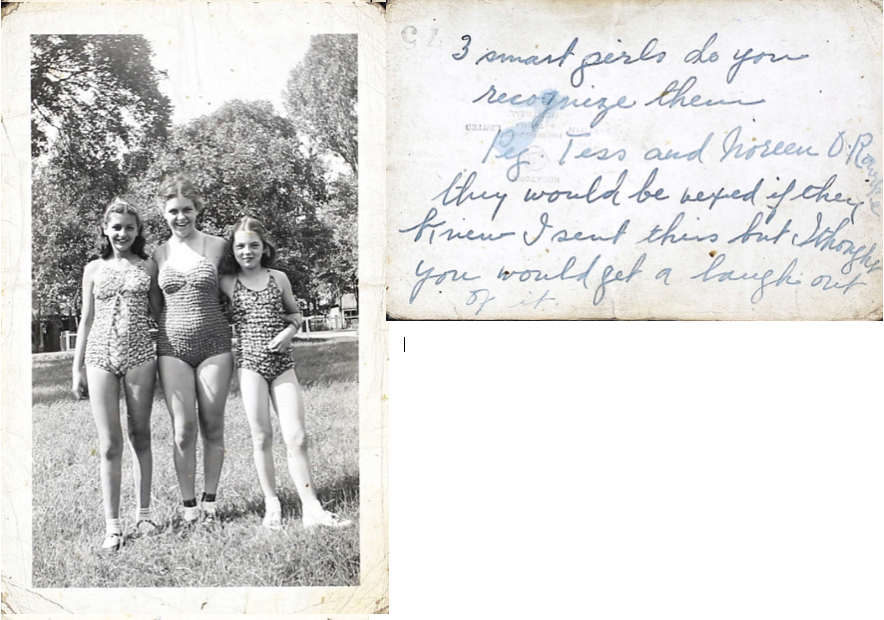 3 smart girls do you
recognize them
Peg Tess and Noreen O'Rourke
they would be vexed if they
knew I sent this but I thought
you would get a laugh out
of it.